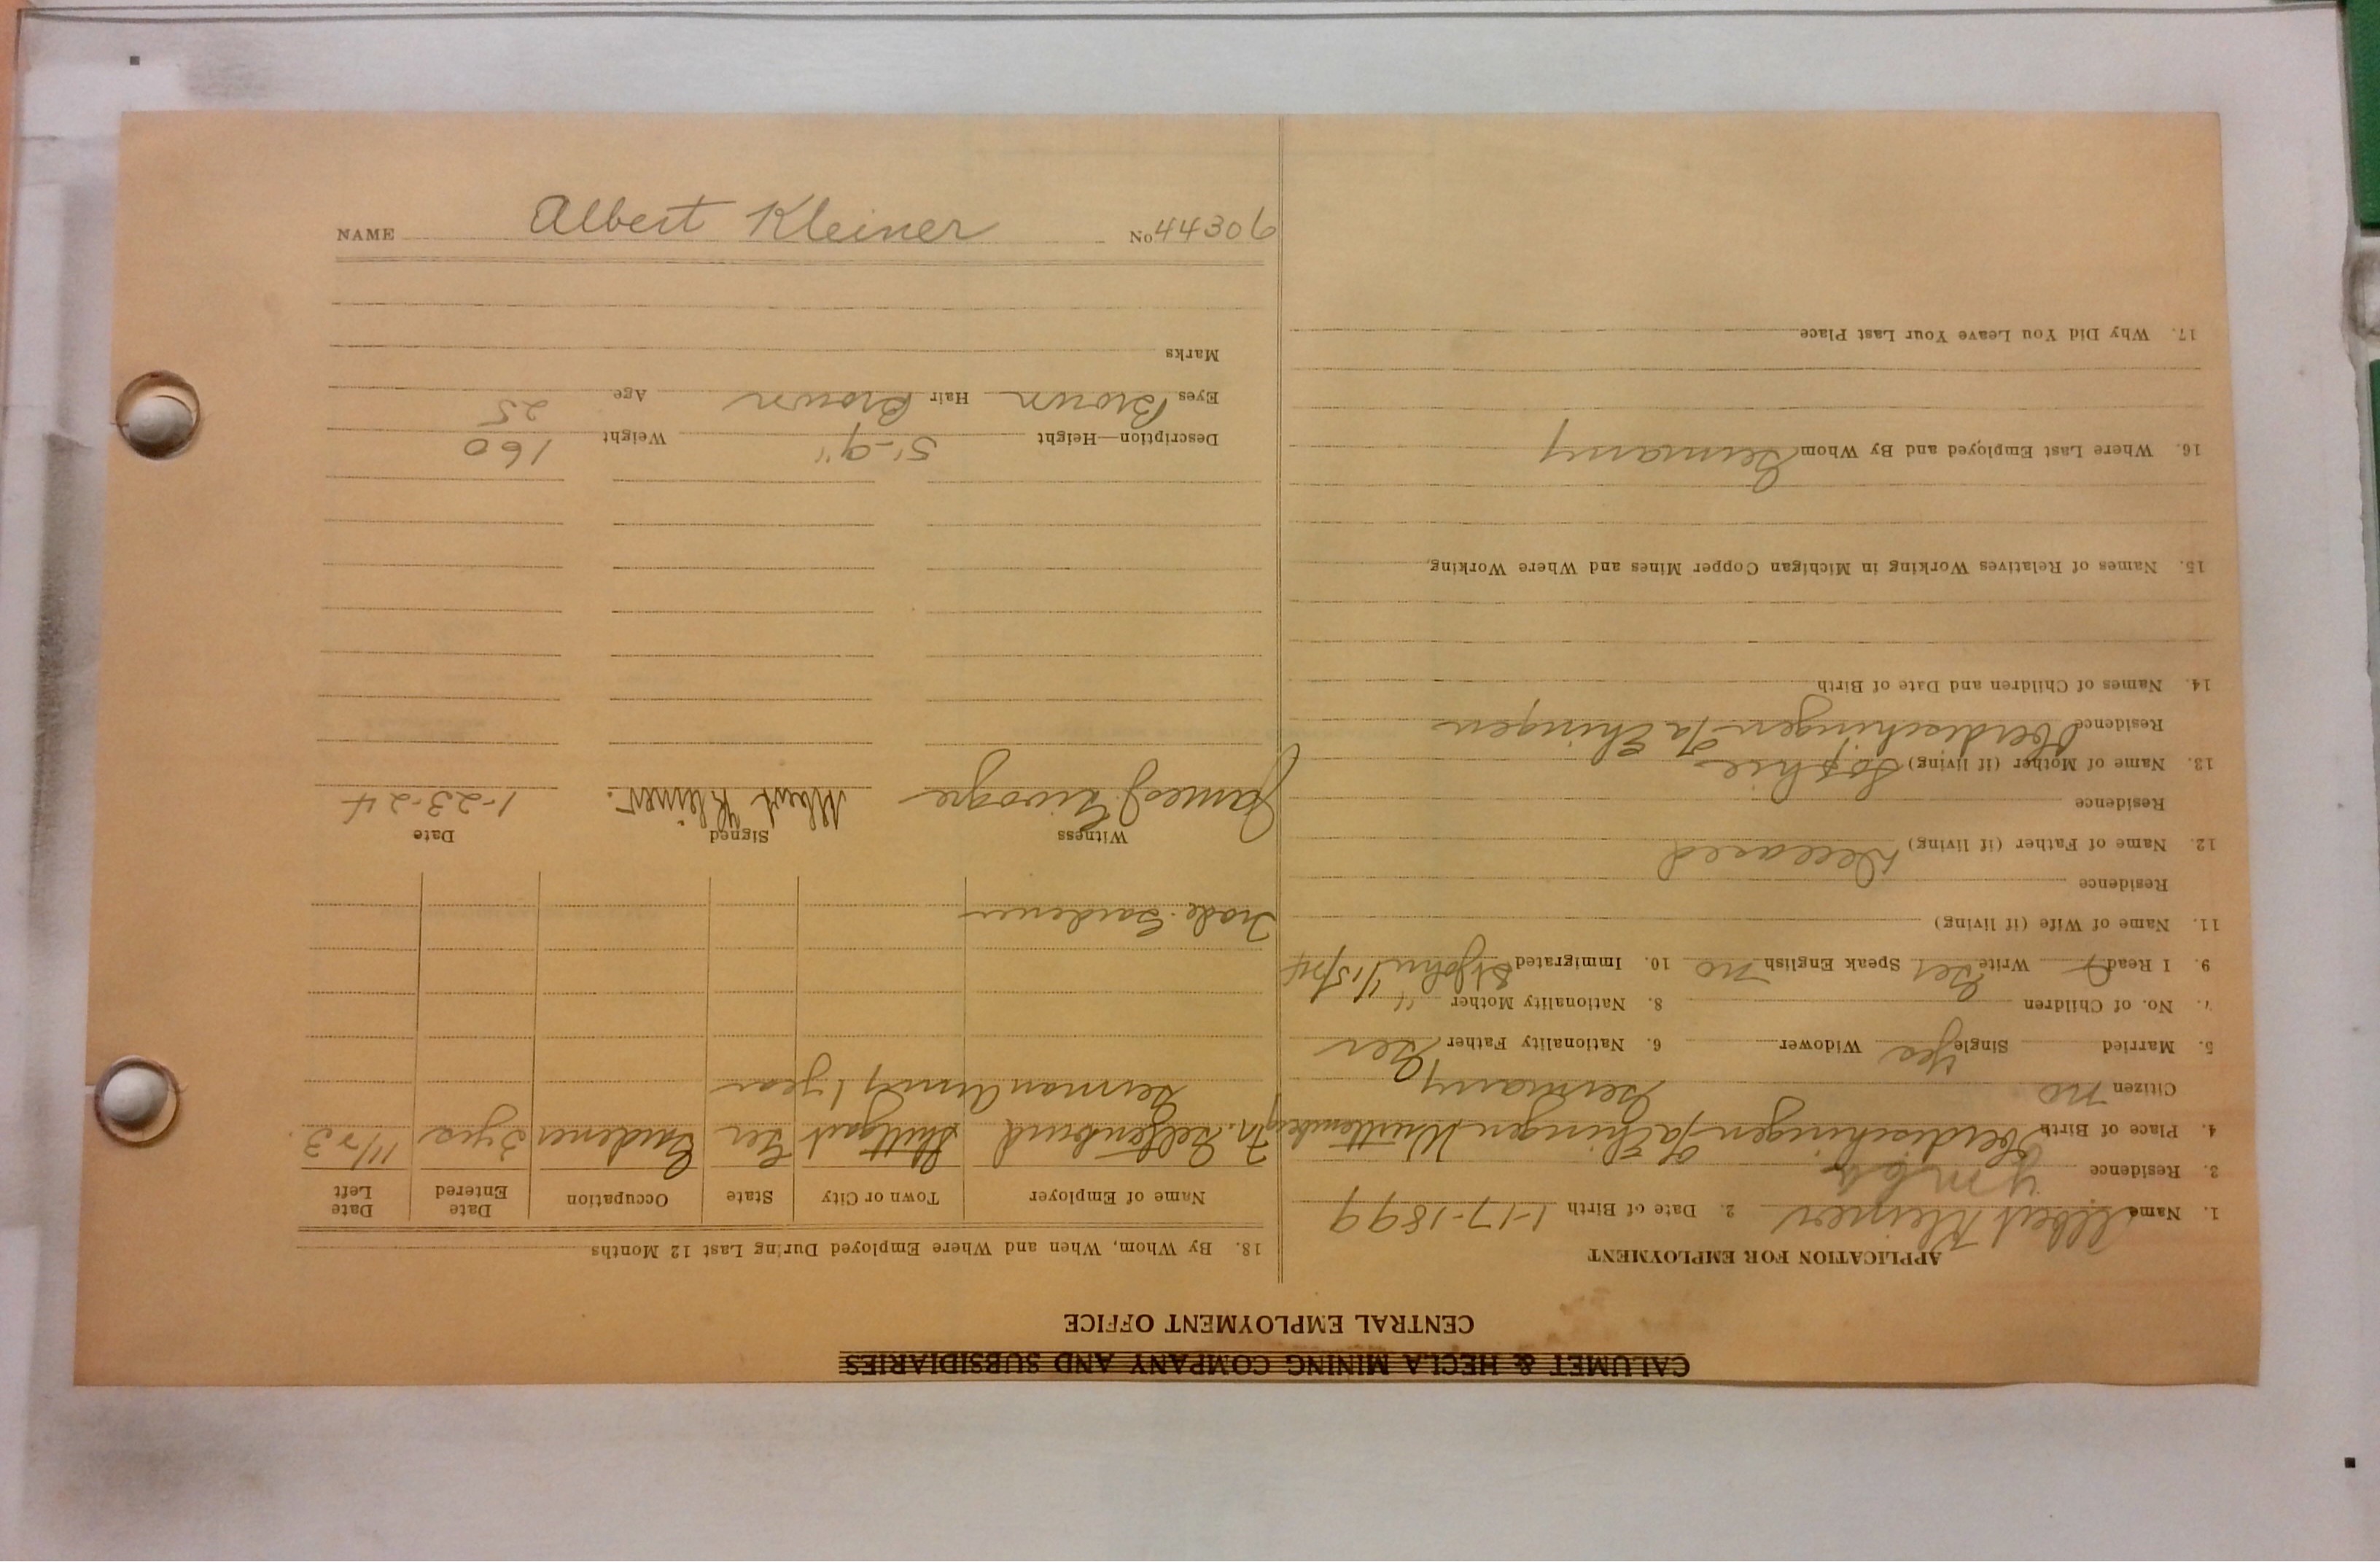 CALUMET & HECLA MINING COMPANY AND SUBSIDIARIES
CENTRAL EMPLOYMENT OFFICE
APPLICATION FOR EMPLOYMENT
1. Name Albert Kleiner 2. Date of Birth 1-17-1899
3. Residence
4. Place of Birth Oberdischingen Ehingen
Citizen no Germany
5. Married Single Yes Widower 6. Nationality Father Ger
7. No. of Children 8. Nationality Mother "
9. I Read Write Ger Speak English no 10. Immigrated St John
11. Name of Wife (if living)
Residence
12. Name of Father (if living) Deceased
Residence
13. Name of Mother (if living) Sophie
Residence Oberdischingen Ehingen
14. Names of Children and Date of Birth
15. Names of Relatives Working in Michigan Copper Mines and Where Working,
16. Where Last Employed and By Whom Germany
17. Why Did You Leave Your Last Place
18. By Whom, When and Where Employed During Last 12 Months
Name of Employer Town or City State Occupation Date Entered Date Left
Stuttgart Ger Gardener 3 yrs 11/23
German Army 1 year
Trade. Gardener
Witness Signed Date
James J. Albert Kleiner. 1-23-24
Description—Height 5'-9" Weight 160
Eyes Brown Hair Brown Age 25
Marks
NAME Albert Kleiner No 44306